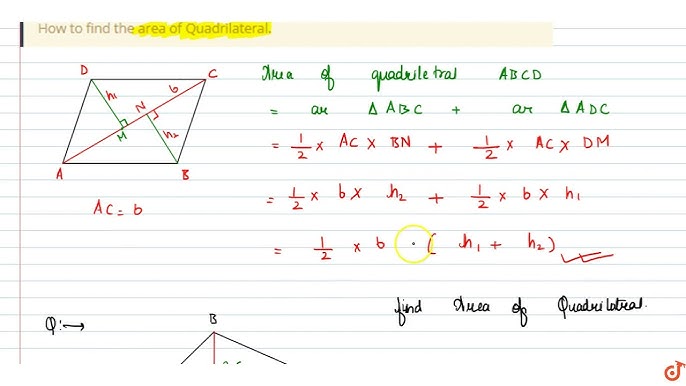 How to find the area of Quadrilateral.
D
C
h1
b
N
M
h2
A
B
AC = b
Area of quadriletral ABCD
= ar Δ ABC + ar Δ ADC
= 1/2 × AC × BN + 1/2 × AC × DM
= 1/2 × b × h2 + 1/2 × b × h1
= 1/2 × b · ( h1 + h2 )
find Area of Quadrilatral.
Q:→
B